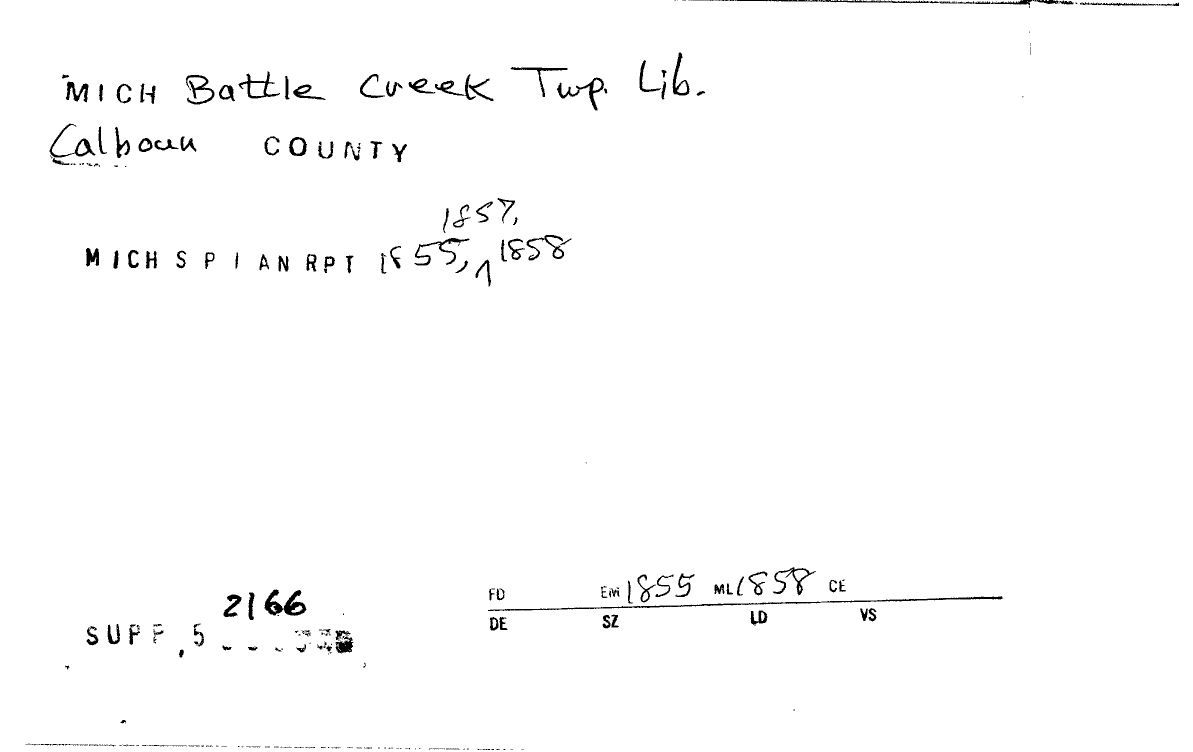 MICH Battle Creek Twp. Lib.
Calhoun COUNTY
1857,
MICH S P I AN RPT 1855, 1858
2166
SUPP, 5
FD EM 1855 ML 1858 CE
DE SZ LD VS